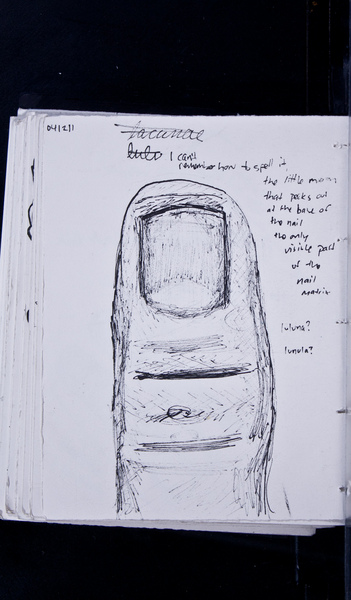 041211
lacunae
lulu I can't
remember how to spell it
the little moon
that peeks out
at the base of
the nail
the only
visible part
of the
nail
matrix
luluna?
lunula?